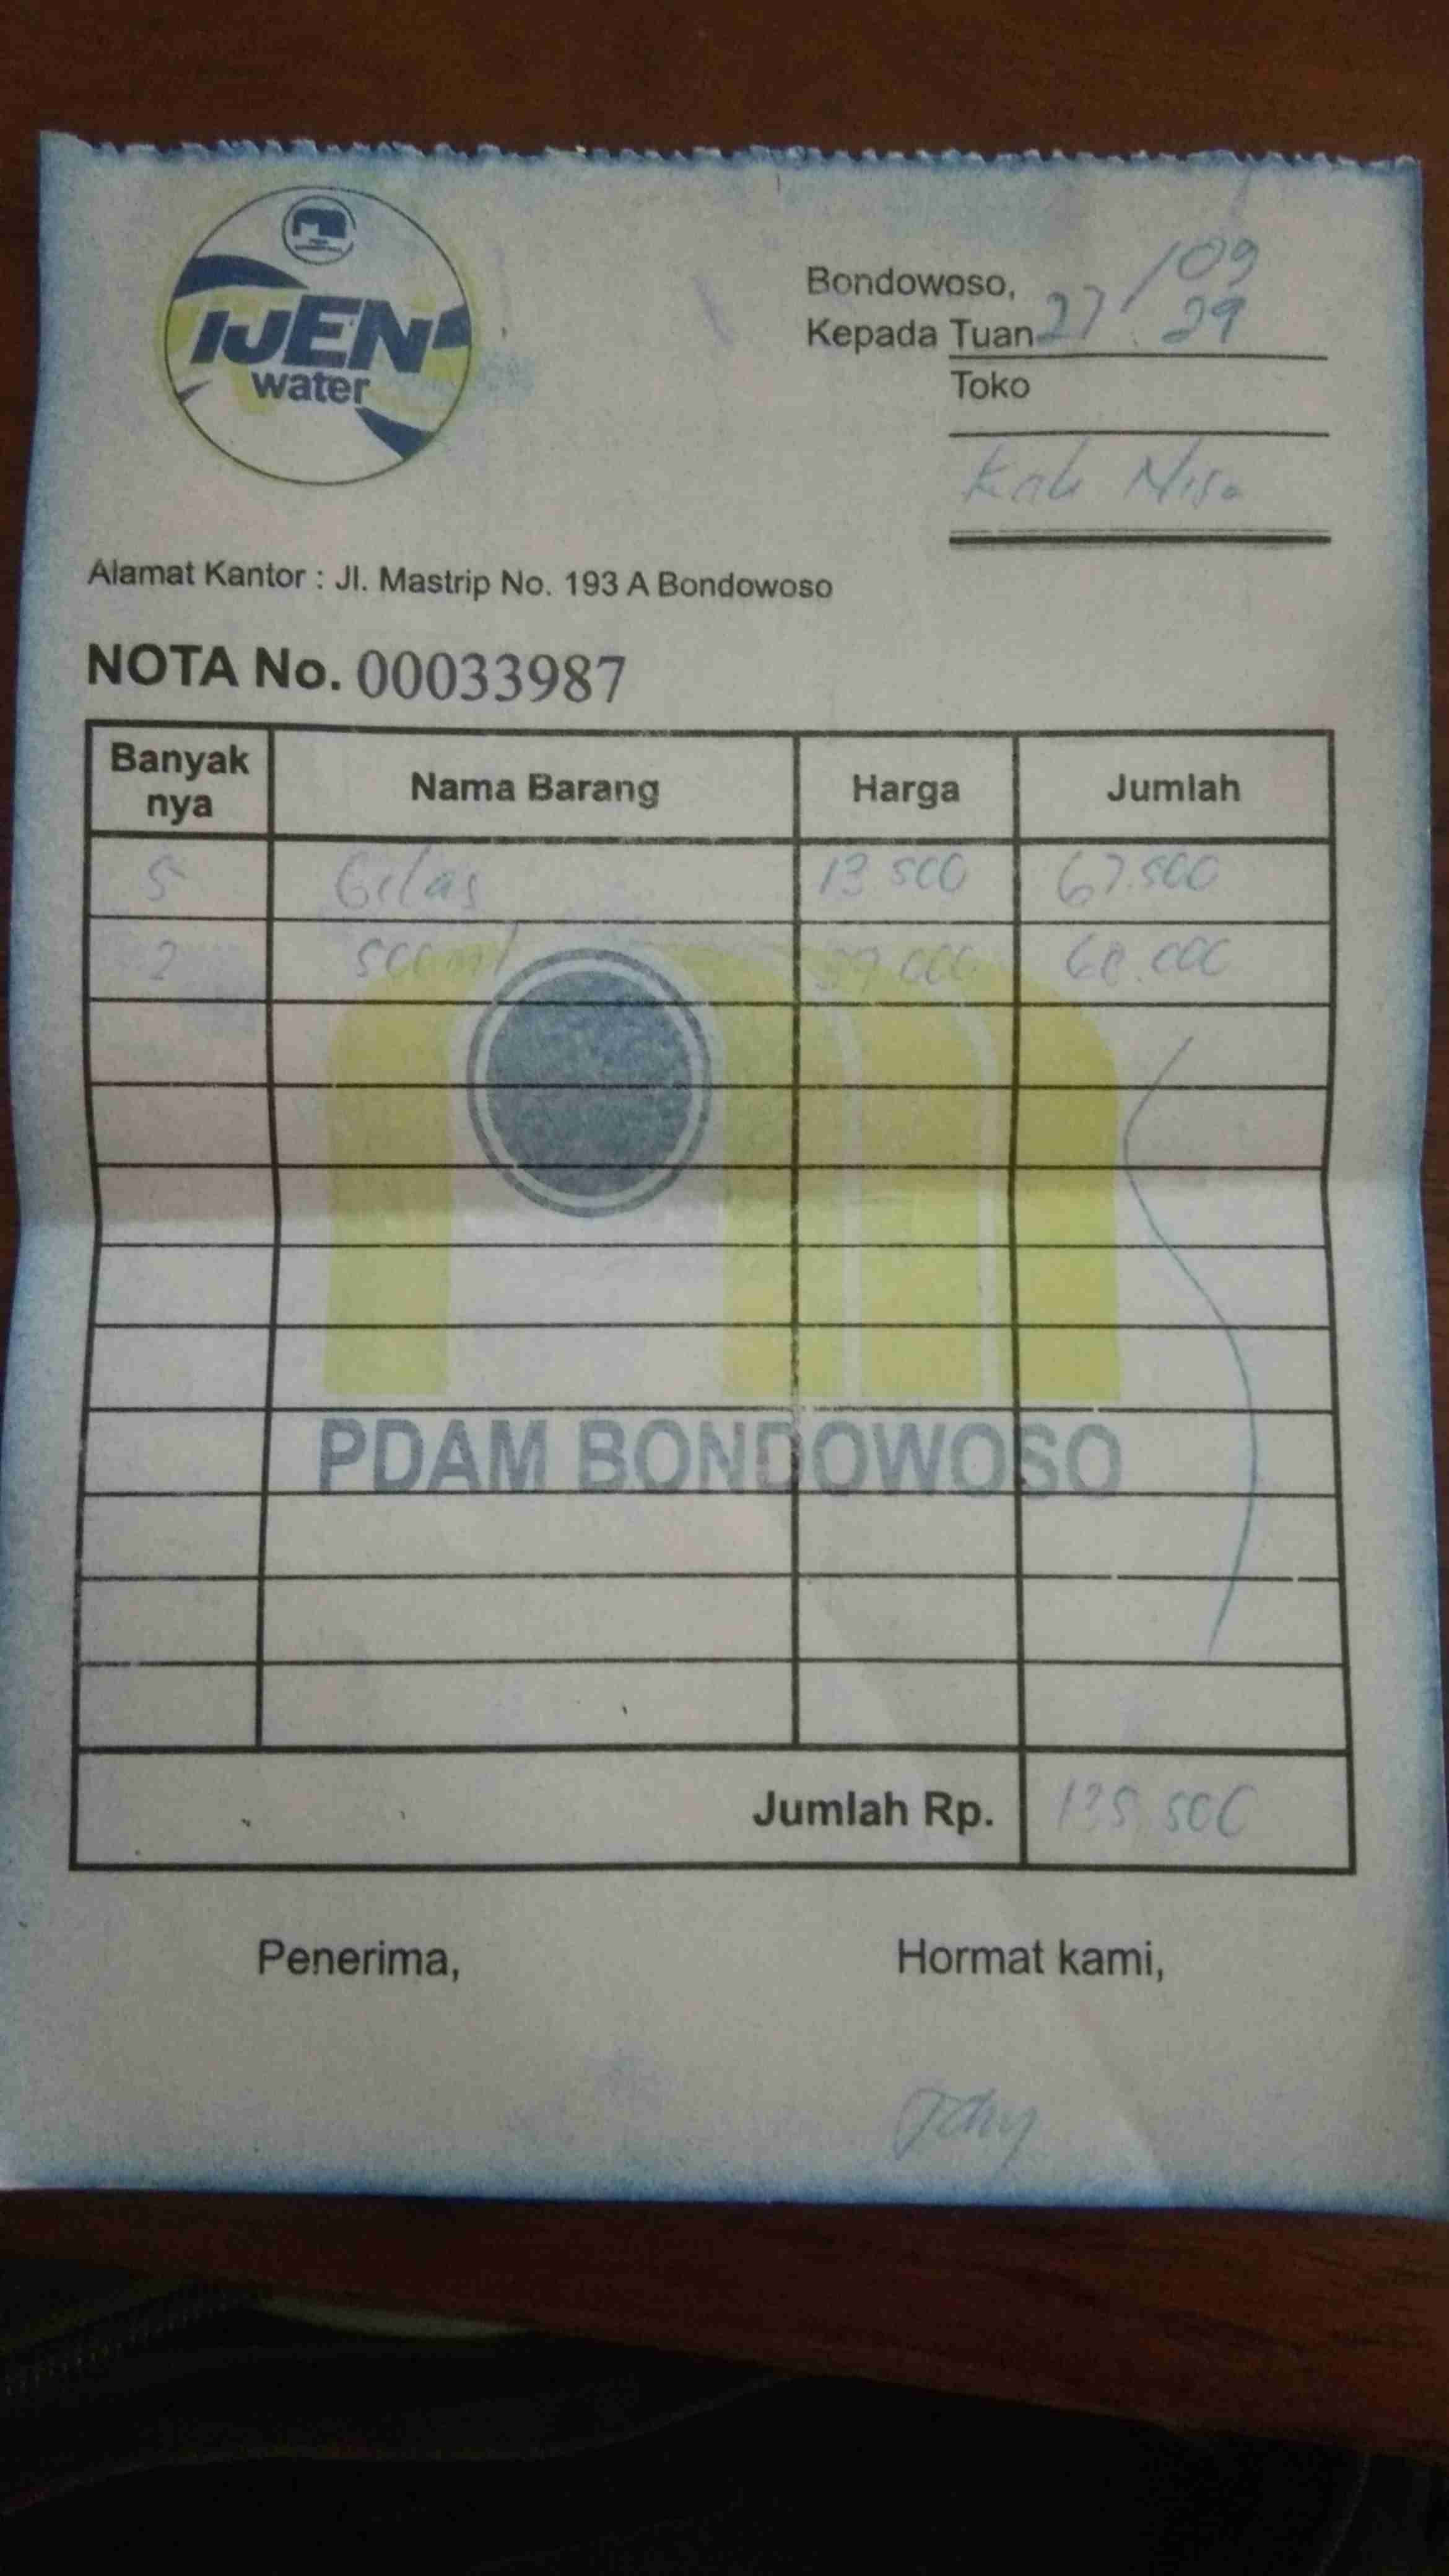 IJEN
water
Bondowoso, 27/09
Kepada Tuan 29
Toko
Kak Nisa
Alamat Kantor : Jl. Mastrip No. 193 A Bondowoso
NOTA No. 00033987
Banyak nya Nama Barang Harga Jumlah
5 Gelas 13 500 67.500
2 500 ml 68.000
PDAM BONDOWOSO
Jumlah Rp. 135.500
Penerima, Hormat kami,